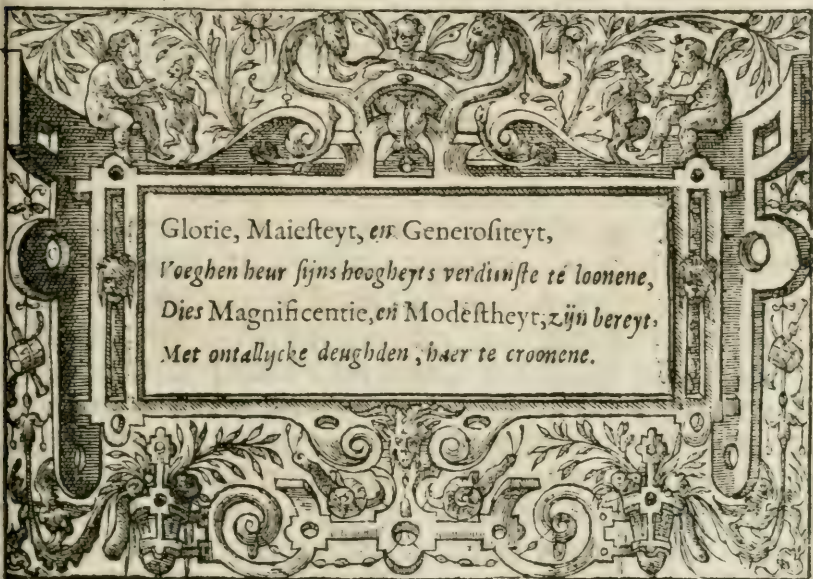 Glorie, Maieſteyt, en Generoſiteyt,
Voeghen heur ſijns hoogheyts verdiinſte te loonene,
Dies Magnificentie, en Modeſtheyt, zijn bereyt,
Met ontallycke deughden, haer te croonene.